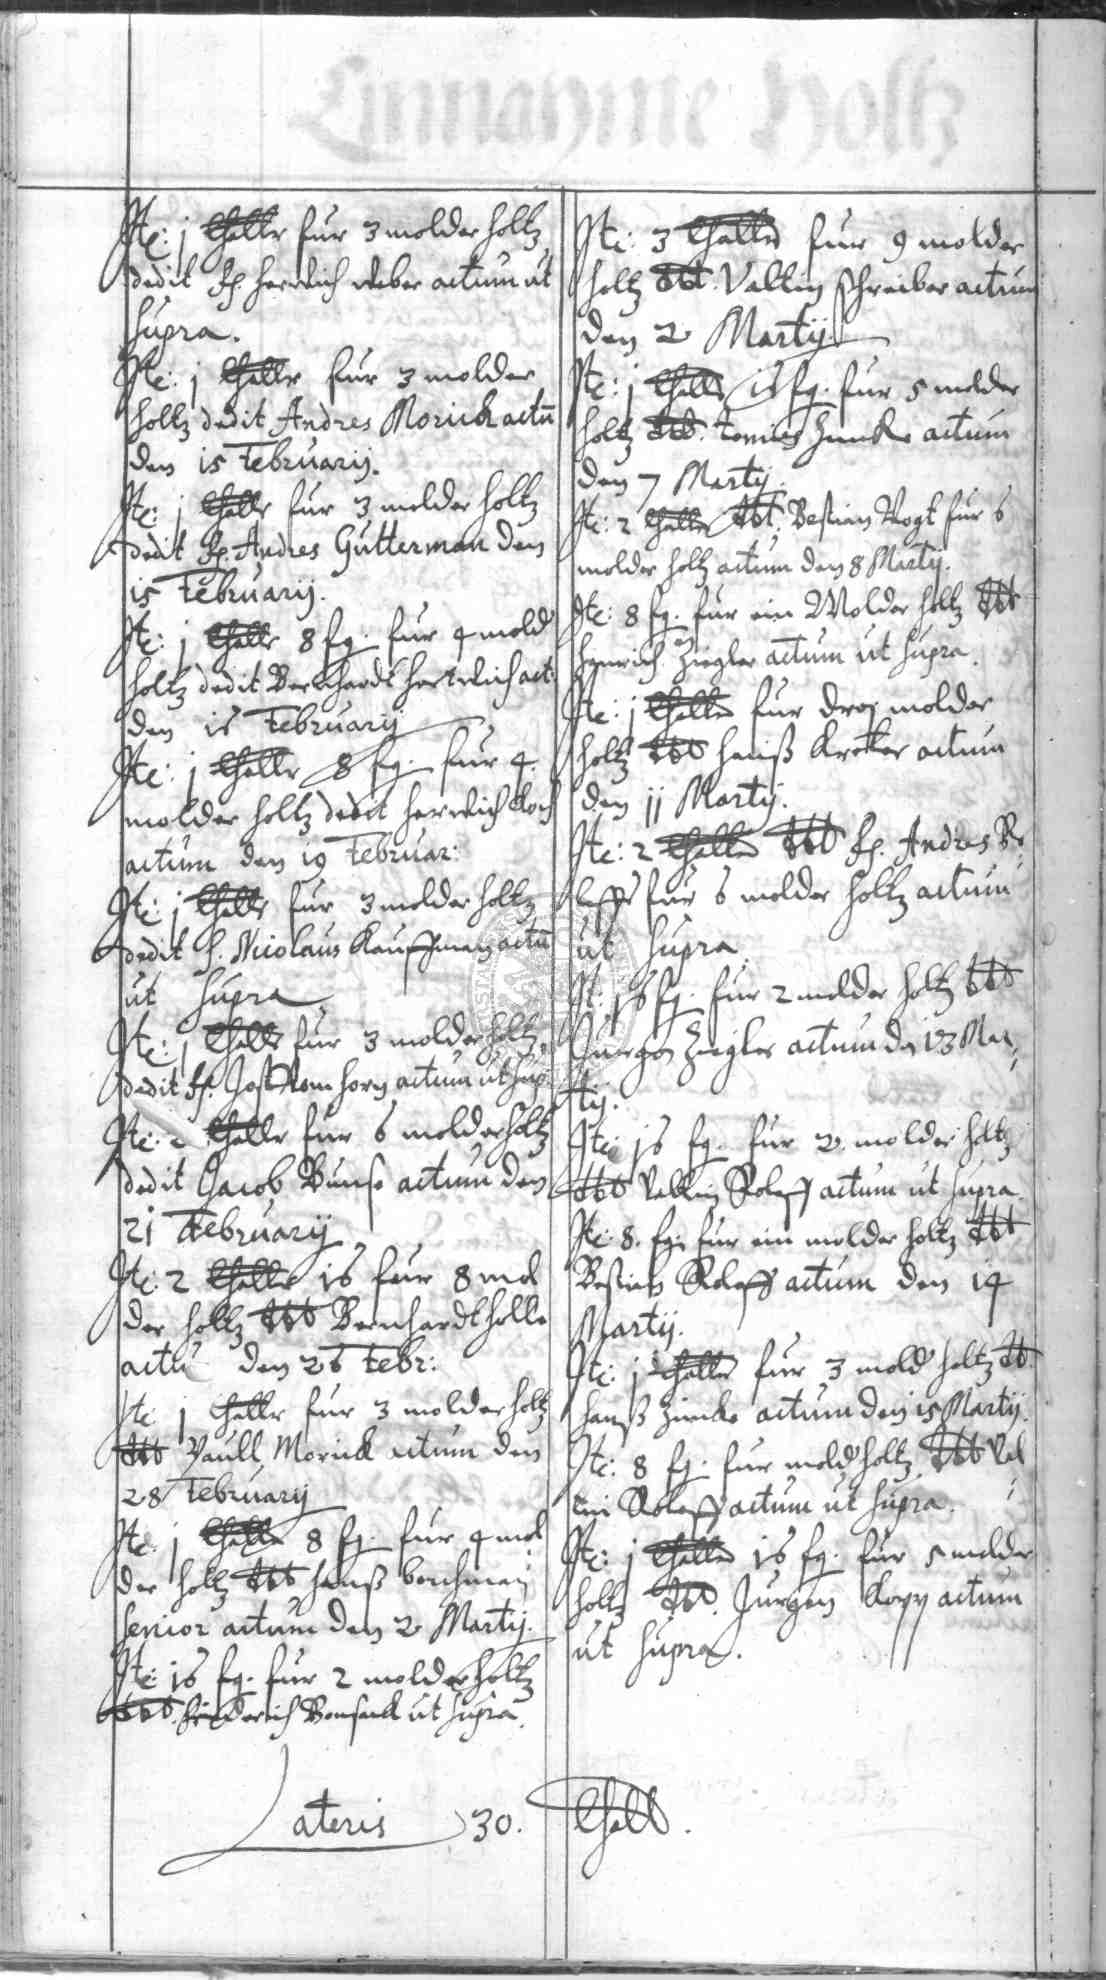 Einnahme Holtz
Ite: j thallr fur 3 molder holtz
dedit H. Henrich Weber actum ut
supra.
Ite: j thallr fur 3 molder
holtz dedit Andres Morick actū
den 15 Februarij.
Ite: j thallr fur 3 molder holtz
dedit H. Andres Gutterman den
15 Februarij.
Ite: j thallr 8 fg. fur 4 mold
holtz dedit Bernhardt act
den 15 Februarij
Ite: j thallr 8 fg. fur 4
molder holtz dedit Henrich Koch
actum den 19 Februar:
Ite: j thallr fur 3 molder holtz
dedit H. Nicolaus Kauffman actū
ut supra
Ite: j thallr fur 3 molder holtz
dedit H. Jost vom Horn actum ut sup
Ite: 2 thallr fur 6 molder holtz
dedit Jacob Bunse actum den
21 Februarij
Ite: 2 thallr 16 fur 8 mol
der holtz ddt Bernhardt Holle
actū den 26 Febr:
Ite j thallr fur 3 molder holtz
ddt Paull Morick actum den
28 Februarij
Ite: j thallr 8 fg. fur 4 mol
der holtz ddt Hanß Borchman
senior actum den 2 Martij.
Ite: 16 fg. fur 2 molder holtz
ddt. Friederich Bonsack ut supra.
Ite: 3 thallr fur 9 molder
holtz ddt. Valtin Schreiber actum
den 2 Martij
Ite: j thallr 16 fg. fur 5 molder
holtz ddt. Tonies Zincke actum
den 7 Martij.
Ite: 2 thallr ddt. Bestian Vogt fur 6
molder holtz actum den 8 Martij.
Ite: 8 fg. fur ein Molder holtz ddt
Henrich Ziegler actum ut supra.
Ite: j thallr fur drej molder
holtz ddt Hanß Kreker actum
den 11 Martij.
Ite: 2 thallr ddt H. Andres Ro
leffs fur 6 molder holtz actum
ut supra
It: 16 fg. fur 2 molder holtz ddt
Jurgen Ziegler actum den 13 Mar
tij.
Ite: 16 fg. fur 2 molder holtz
ddt Valtin Roleff actum ut supra.
Ite: 8. fg. fur ein molder holtz ddt
Bestian Roleff actum den 14
Martij.
Ite: j thallr fur 3 mold holtz dt
Hanß Zincke actum den 15 Martij.
Ite: 8 fg. fur mold holtz ddt Val
tin Roleff actum ut supra.
Ite: j thallr 16 fg. fur 5 molder
holtz ddt. Jurgen Kopp actum
ut supra.
Lateris 30. thall.